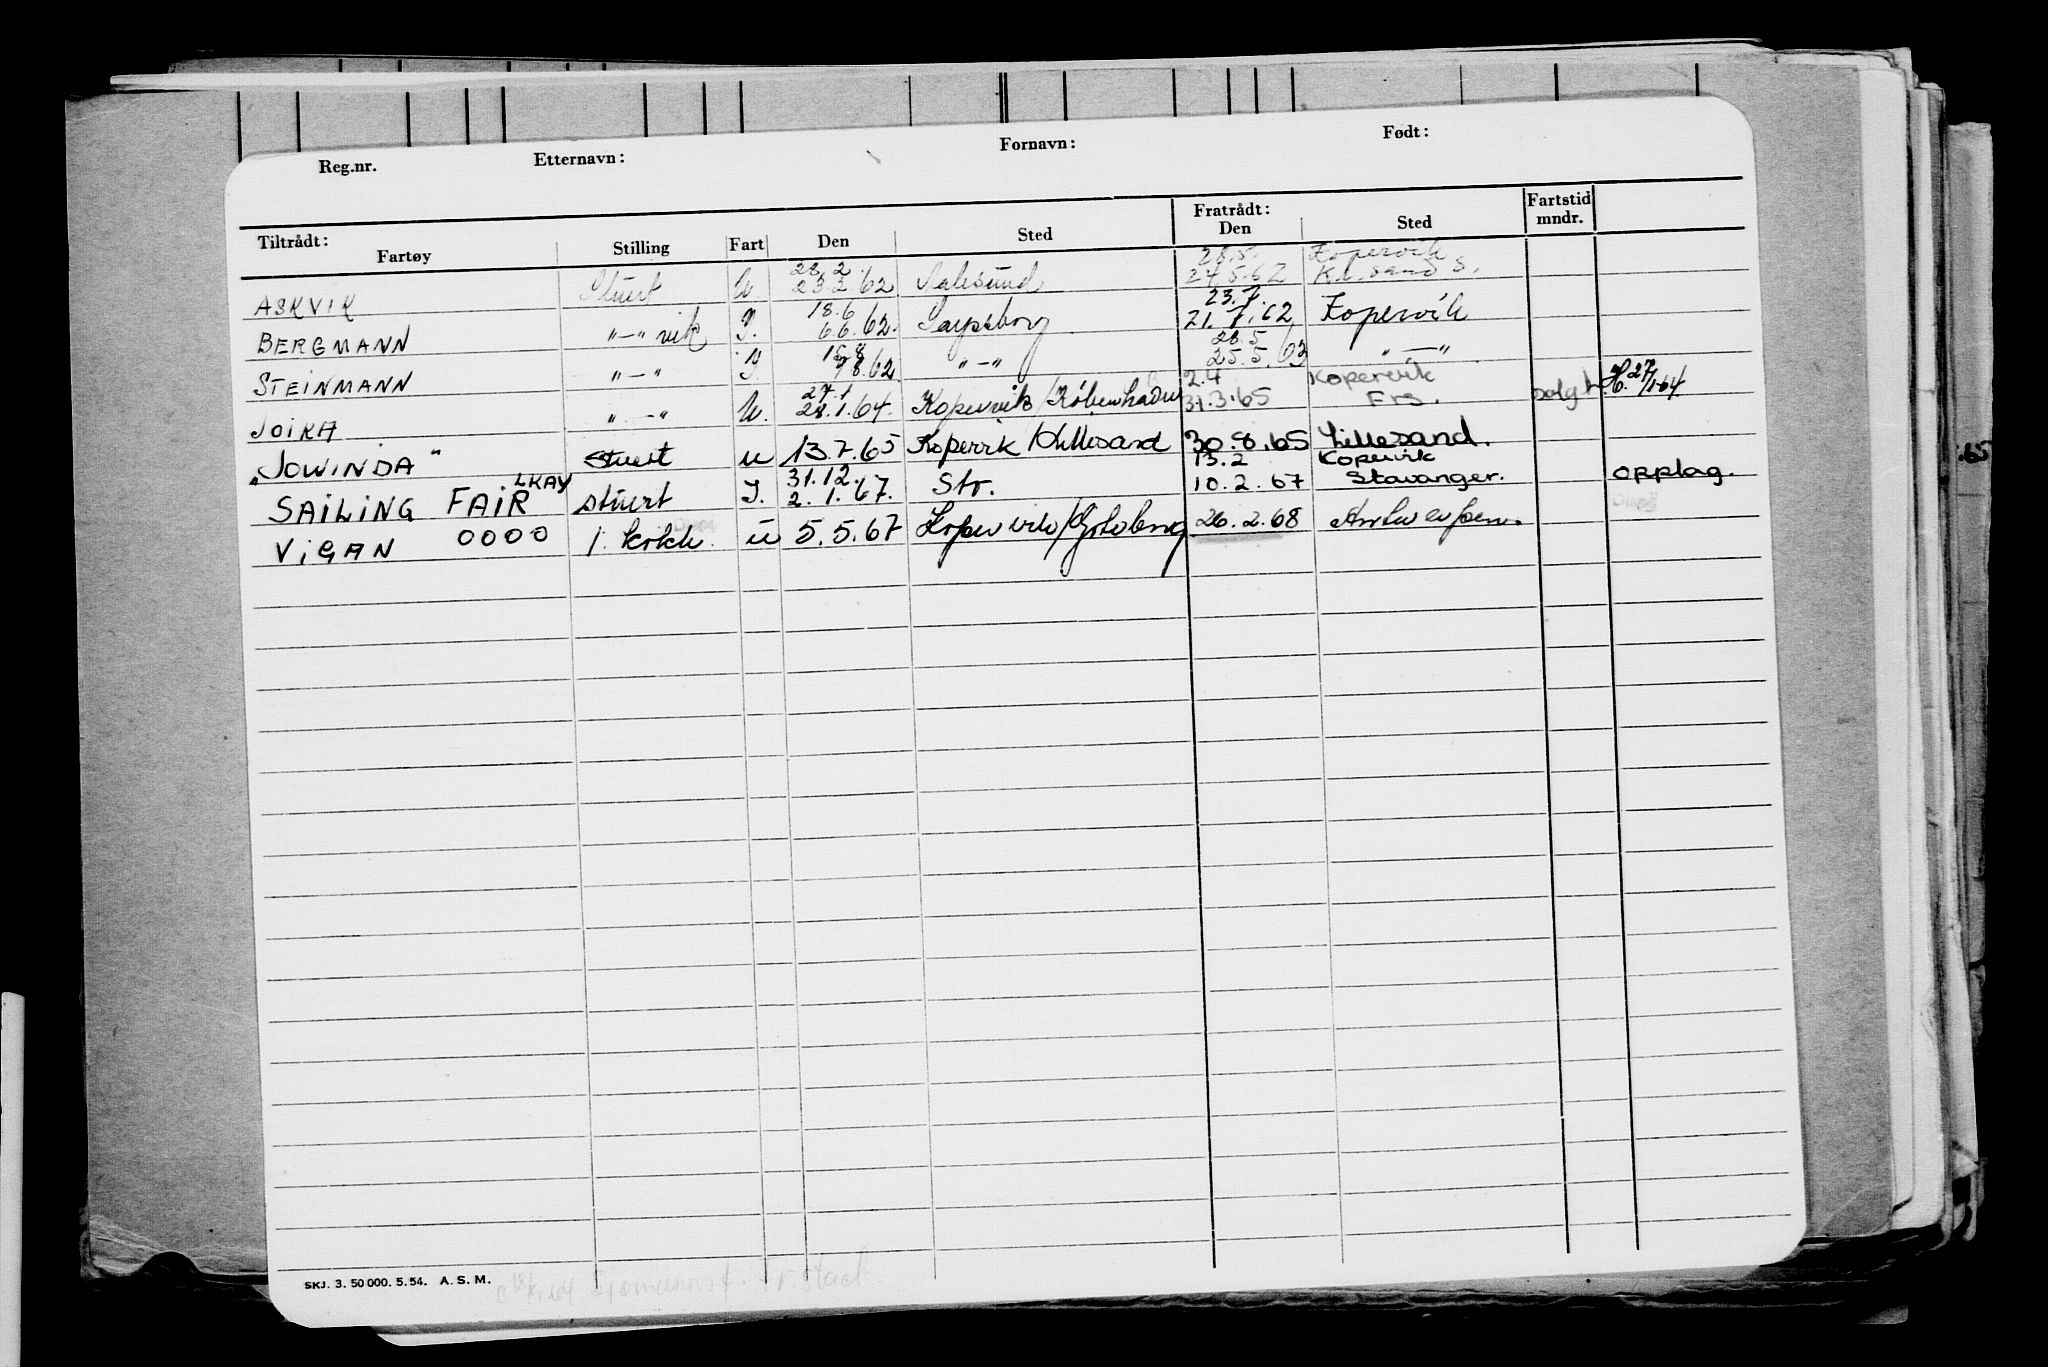 Reg.nr. Etternavn: Fornavn: Født:
Tiltrådt: Fratrådt: Fartstid
Fartøy Stilling Fart Den Sted Den Sted mndr.
28.2 28.5. Kopervik
ASKVIK Stuert U. 23.2.62 Aalesund 24.5.62 Kr.sand S.
18.6 23.7.
BERGMANN "—" vik I. 6.6.62. Sarpsborg 21.7.62 Kopervik
15.8 28.5
STEINMANN "—" I. 7.8.62. "—" 25.5.63 "—"
27.1 2.4 Kopervik
JOIKA "—" U. 28.1.64. Kopervik/København 31.3.65 Frs. solgt H. 27/1-64.
"JOWINDA" stuert u 13.7.65 Kopervik/Lillesand 30.8.65 Lillesand.
LKAY 31.12. 13.2 Kopervik
SAILING FAIR stuert I. 2.1.67. Str. 10.2.67 Stavanger. opplag.
VIGAN 0000 1. kokk. u 5.5.67 Kopervik/Gøteborg 26.2.68 Antwerpen.
.65
SKJ. 3. 50 000. 5. 54. A. S. M.